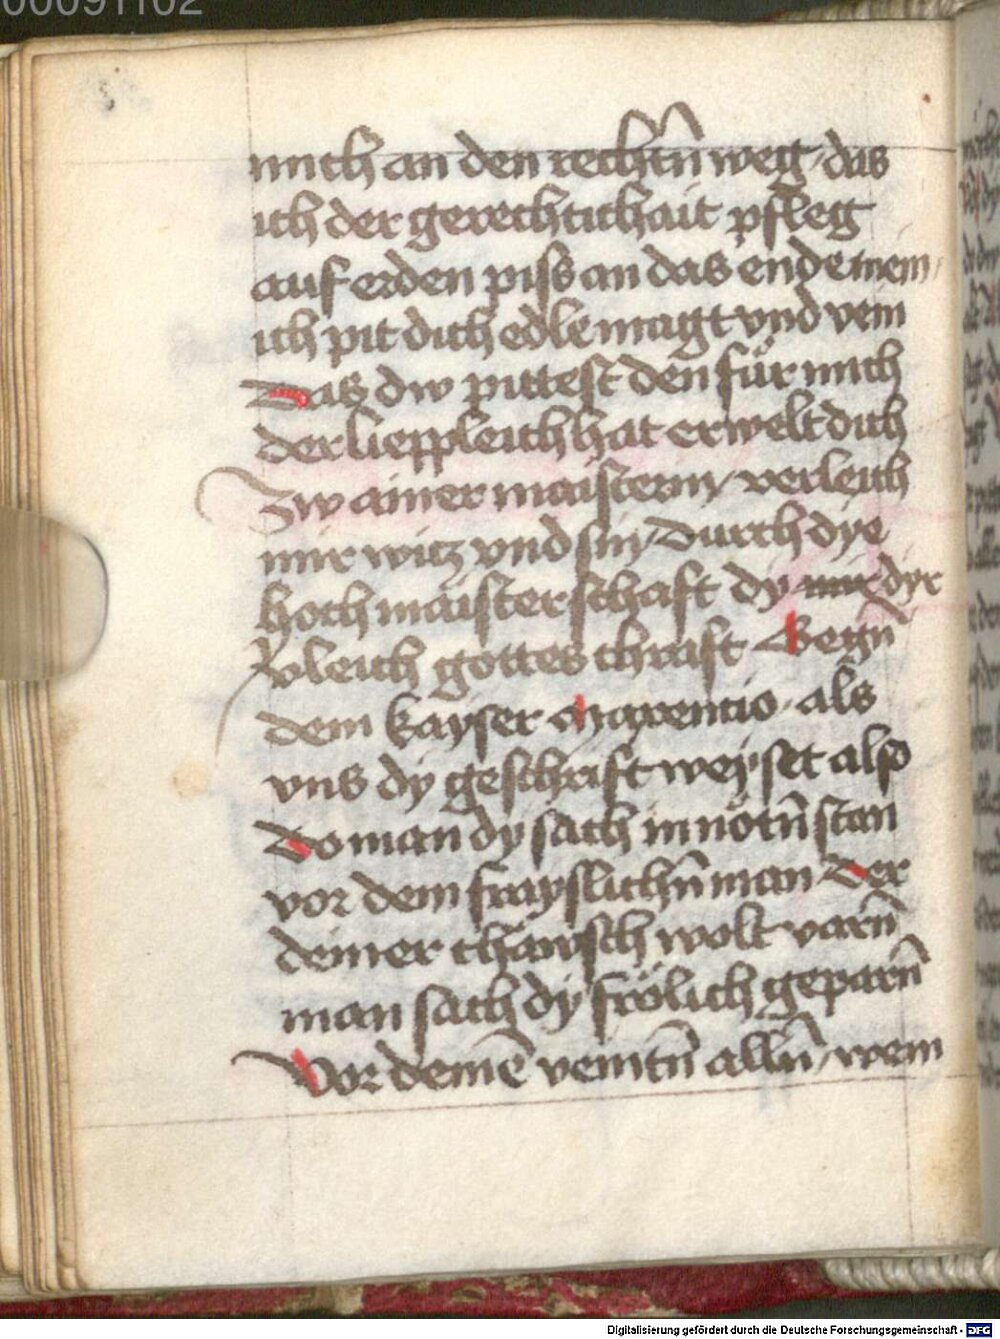 00091102
mich an den rechtn̄ weg das
ich der gerechtichait pfleg
auf erden piss an das ende mein
ich pit dich edle magt vnd vein
Das dw pittest den für mich
der lieppleich hat erwelt dich
Zw ainer maistern verleich
mir witz vnd sin Durch dye
hoch maisterschaft dy mir dyr
Vleich gottes chraft Gegn̄
dem kayser Maxentio als
vns dy geschrift weyset also
Do man dy sach in nötn̄ stan
vor dem frayslichn̄ man Der
deiner chawsch wolt varn̄
man sach dy frölich geparn̄
Vor deinē veintn̄ alln̄ wem
Digitalisierung gefördert durch die Deutsche Forschungsgemeinschaft - DFG